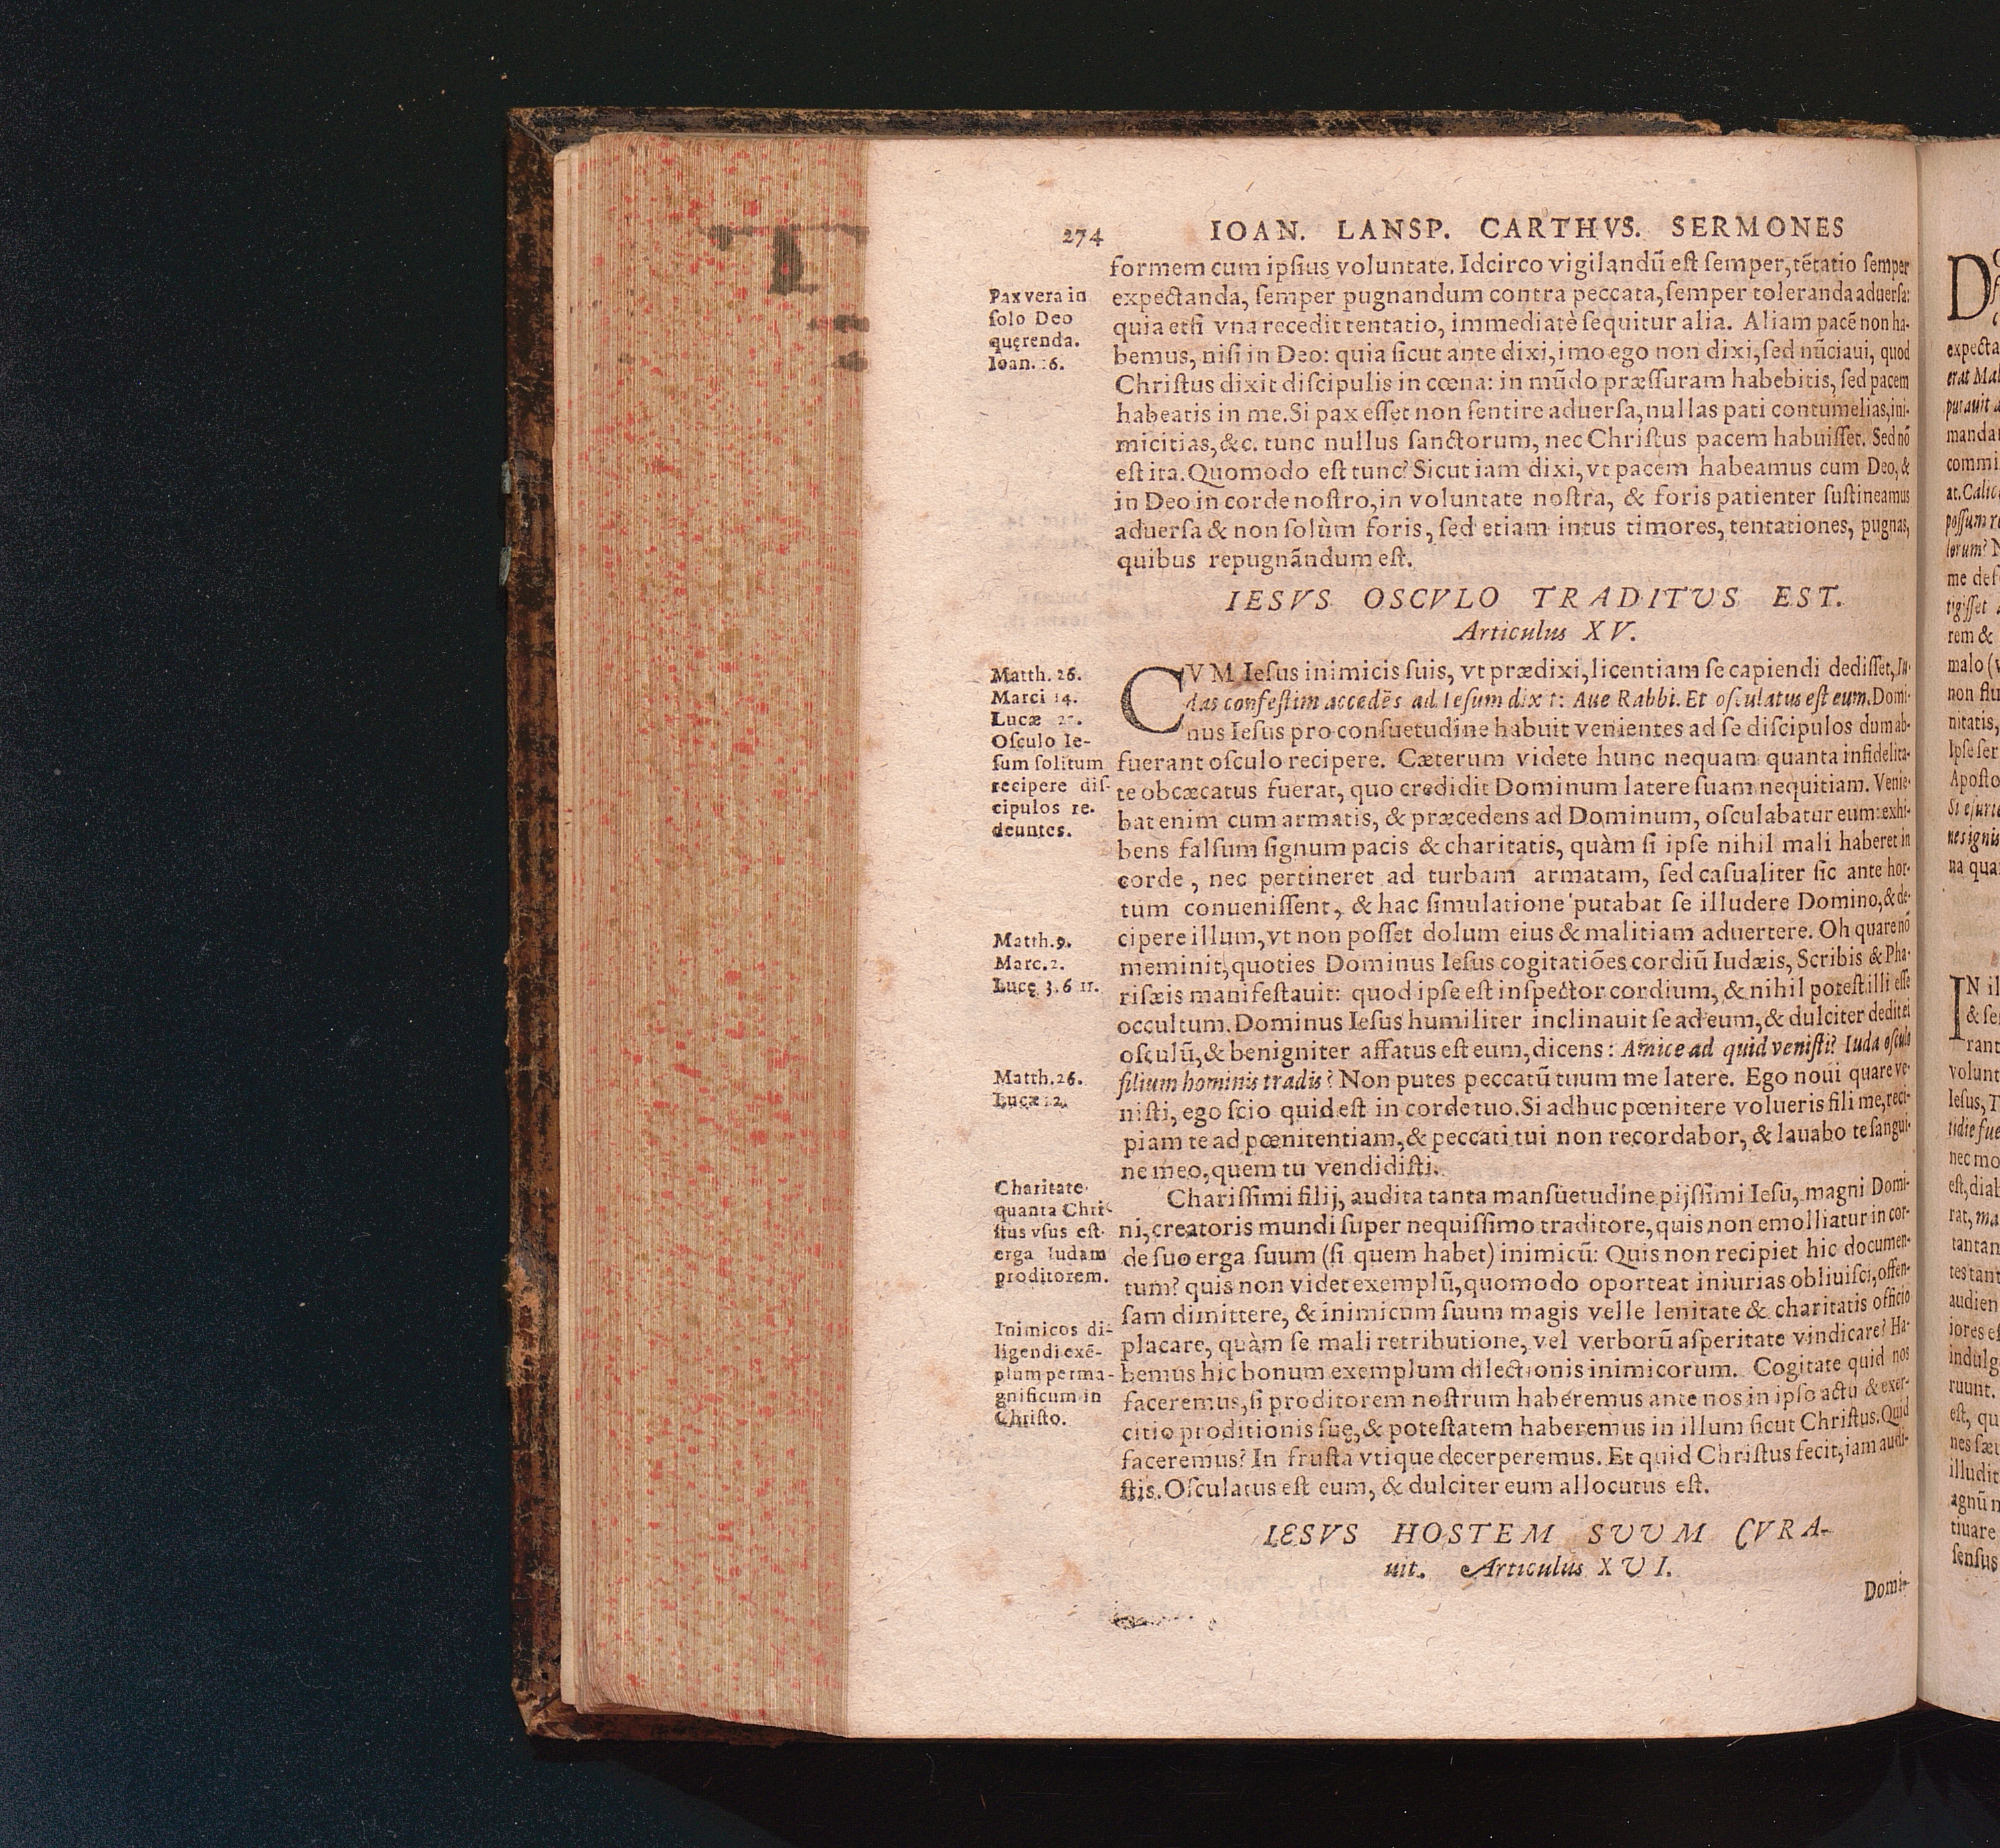 274 IOAN. LANSP. CARTHVS. SERMONES
formem cum ipſius voluntate. Idcirco vigilandū eſt ſemper, tētatio ſemper
expectanda, ſemper pugnandum contra peccata, ſemper toleranda aduerſa:
quia etſi vna recedit tentatio, immediatè ſequitur alia. Aliam pacē non ha-
bemus, niſi in Deo: quia ſicut ante dixi, imo ego non dixi, ſed nūciaui, quod
Chriſtus dixit diſcipulis in cœna: in mūdo præſſuram habebitis, ſed pacem
habeatis in me. Si pax eſſet non ſentire aduerſa, nullas pati contumelias, ini-
micitias, &c. tunc nullus ſanctorum, nec Chriſtus pacem habuiſſet. Sed nō
eſt ita. Quomodo eſt tunc? Sicut iam dixi, vt pacem habeamus cum Deo, &
in Deo in corde noſtro, in voluntate noſtra, & foris patienter ſuſtineamus
aduerſa & non ſolùm foris, ſed etiam intus timores, tentationes, pugnas,
quibus repugnādum eſt.
Pax vera in
ſolo Deo
quęrenda.
Ioan. 16.
IESVS OSCVLO TRADITUS EST.
Articulus XV.
CVM Ieſus inimicis ſuis, vt prædixi, licentiam ſe capiendi dediſſet, Iu-
das confeſtim accedēs ad Ieſum dixit: Aue Rabbi. Et oſculatus eſt eum. Domi-
nus Ieſus pro conſuetudine habuit venientes ad ſe diſcipulos dum ab-
fuerant oſculo recipere. Cæterum videte hunc nequam quanta infidelita-
te obcæcatus fuerat, quo credidit Dominum latere ſuam nequitiam. Venie-
bat enim cum armatis, & præcedens ad Dominum, oſculabatur eum: exhi-
bens falſum ſignum pacis & charitatis, quàm ſi ipſe nihil mali haberet in
corde, nec pertineret ad turbam armatam, ſed caſualiter ſic ante hor-
tum conueniſſent, & hac ſimulatione putabat ſe illudere Domino, & de-
cipere illum, vt non poſſet dolum eius & malitiam aduertere. Oh quare nō
meminit, quoties Dominus Ieſus cogitatiōes cordiū Iudæis, Scribis & Pha-
riſæis manifeſtauit: quod ipſe eſt inſpector cordium, & nihil poteſt illi eſſe
occultum. Dominus Ieſus humiliter inclinauit ſe ad eum, & dulciter dedit ei
oſculū, & benigniter affatus eſt eum, dicens: Amice ad quid veniſti? Iuda oſculo
filium hominis tradis? Non putes peccatū tuum me latere. Ego noui quare ve-
niſti, ego ſcio quid eſt in corde tuo. Si adhuc pœnitere volueris fili me, reci-
piam te ad pœnitentiam, & peccati tui non recordabor, & lauabo te ſangui-
ne meo, quem tu vendidiſti.
Matth. 26.
Marci 14.
Lucæ
Oſculo Ie-
ſum ſolitum
recipere diſ-
cipulos re-
deuntes.
Matth. 9.
Marc. 2.
Lucę 3. 6 11.
Matth. 26.
Lucæ
Chariſſimi filij, audita tanta manſuetudine pijſſimi Ieſu, magni Domi-
ni, creatoris mundi ſuper nequiſſimo traditore, quis non emolliatur in cor-
de ſuo erga ſuum (ſi quem habet) inimicū: Quis non recipiet hic documen-
tum? quis non videt exemplū, quomodo oporteat iniurias obliuiſci, offen-
ſam dimittere, & inimicum ſuum magis velle lenitate & charitatis officio
placare, quàm ſe mali retributione, vel verborū aſperitate vindicare? Ha-
bemus hic bonum exemplum dilectionis inimicorum. Cogitate quid nos
faceremus, ſi proditorem noſtrum haberemus ante nos in ipſo actu & exer-
citio proditionis ſuę, & poteſtatem haberemus in illum ſicut Chriſtus. Quid
faceremus? In fruſta vtique decerperemus. Et quid Chriſtus fecit, iam audi-
ſtis. Oſculatus eſt eum, & dulciter eum allocutus eſt.
Charitate
quanta Chri-
ſtus vſus eſt
erga Iudam
proditorem.
Inimicos di-
ligendi exē-
plum perma-
gnificum in
Chriſto.
IESVS HOSTEM SUUM CVRA-
uit. Articulus XVI.
Domi-